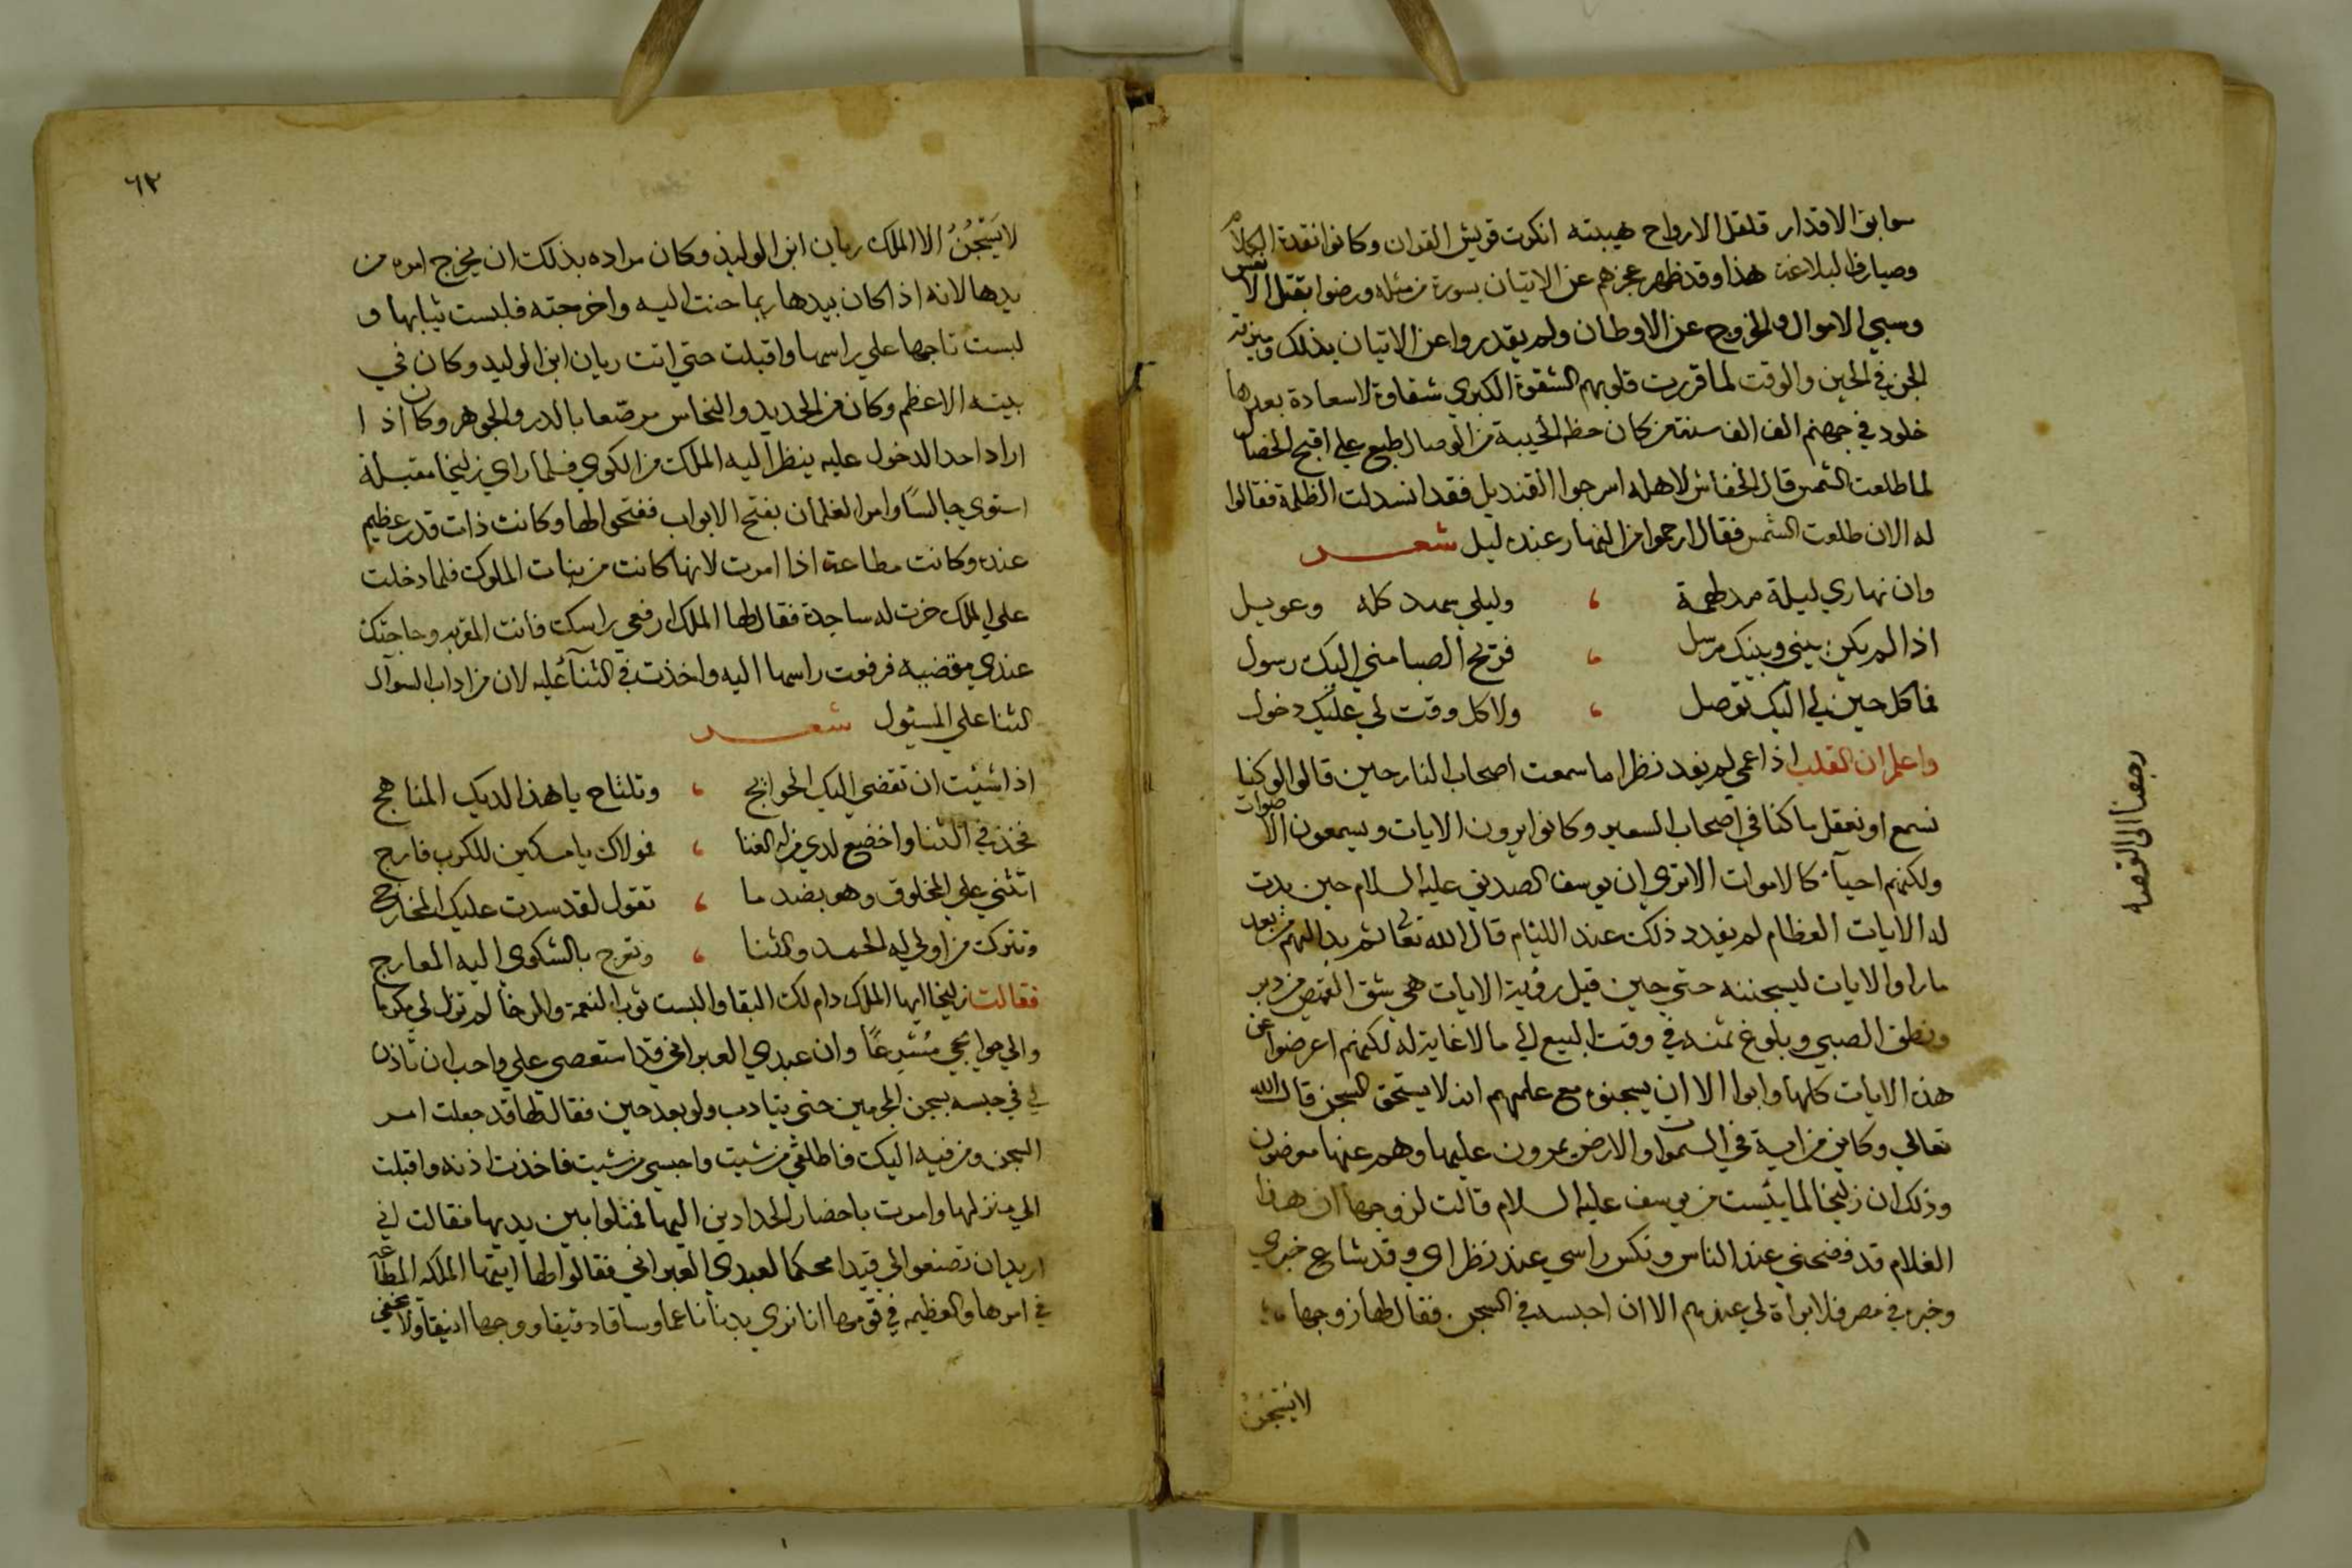 سوابق الاقدار قلقل الارواح هيبته انكرت قريش القران وكانوا نقدة الكلام
وصيارف البلاغة هذا وقد ظهر عجزهم عن الاتيان بسورة من مثله ورضوا بقتل الانفس
وسبي الاموال والخروج عن الاوطان ولم يقدروا عن الاتيان بذلك
الجن في الحين والوقت لما قررت قلوبهم الشقوة الكبري شقاوة لا سعادة بعدها
خلود في جهنم الف الف سنة من كان حظه الخيبة من الوصال طبع علي اقبح الخصال
لما طلعت الشمس قال الخفاش لاهله اسرجوا القنديل فقد انسدلت الظلمة فقالوا
له الان طلعت الشمس فقال ارحموا من النهار عنده ليل شعر
وان نهاري ليلة مدلهمة ، وليلي سهد كله وعويل
اذا لم يكن بيني وبينك مرسل ، فريح الصبا مني اليك رسول
فما كل حين لي اليك توصل ، ولا كل وقت لي عليك دخول
واعلم ان القلب اذا عمي لم يفد نظر اما سمعت اصحاب النار حين قالوا لو كنا
نسمع او نعقل ما كنا في اصحاب السعير وكانوا يرون الايات ويسمعون الاصوات
ولكنهم احياء كالاموات الا تري ان يوسف الصديق عليه السلام حين بدت
له الايات العظام لم يفد ذلك عند الليام قال الله تعالى ثم بدا لهم من بعد
ما راوا الايات ليسجننه حتي حين قيل رؤية الايات هي شق القميص من دبر
ونطق الصبي وبلوغ ثمنه في وقت البيع الي ما لا غاية له لكنهم اعرضوا عن
هذه الايات كلها وابوا الا ان يسجنوه مع علمهم انه لا يستحق السجن قال الله
تعالي وكاين من اية في السموات والارض يمرون عليها وهم عنها معرضون
وذلك ان زليخا لما يئست من يوسف عليه السلام قالت لزوجها ان هذا
الغلام قد فضحني عند الناس ونكس راسي عند نظراي وقد شاع خبري
وخبره في مصر فلا براة لي عندهم الا ان احبسه في السجن. فقال لها زوجها
لا يَسْجُنُ
رجعنا الى القصه
٦٢
لا يَسْجُنُ الا الملك ريان ابن الوليد وكان مراده بذلك ان يخرج امره من
يدها لانه اذا كان بيدها ربما حنت اليه واخرجته فلبست ثيابها و
لبست تاجها علي راسها واقبلت حتي اتت ريان ابن الوليد وكان في
بيته الاعظم وكان من الحديد والنحاس مرصعا بالدر والجوهر وكان اذا
اراد احد الدخول عليه ينظر اليه الملك من الكوي فلما راي زليخا مقبلة
استوي جالسًا وامر الغلمان بفتح الابواب ففتحوا لها وكانت ذات قدر عظيم
عنده وكانت مطاعة اذا امرت لانها كانت من بنات الملوك فلما دخلت
علي الملك خرت له ساجدة فقال لها الملك ارفعي راسك فانت المقربه وحاجتك
عندي مقضيه فرفعت راسها اليه واخذت في الثنآ عليه لان من اداب السوال
الثنا علي المسئول شعر
اذا شئت ان تقضي اليك الحوايج ، وتلتاح يا هذا لديك المناهج
فخذ في الثنا واخضع لدي من له الغنا ، فمولاك يا مسكين للكرب فارج
اتثني علي المخلوق وهو بضد ما ، تقول لقد سدت عليك المخارج
وتترك من اولي له الحمد والثنا ، وتعرج بالشكوي اليه المعارج
فقالت زليخا ايها الملك دام لك البقا والبست ثوب النعمة والرخا لم تزل لي مكرما
والي حوايجي مُسْرِعًا وان عبدي العبراني قد استعصى علي واحب ان تاذن
لي في حبسه بسجن المجرمين حتى يتادب ولو بعد حين فقال لها قد جعلت امر
السجن ومن فيه اليك فاطلقي من شيت واحبسي من شيت فاخذت اذنه واقبلت
الي منزلها وامرت باحضار الحدادين اليها فمثلوا بين يديها فقالت اني
اريد ان تصنعوا لي قيدا محكما لعبدي العبراني فقالوا لها ايتها الملكه المطاعة
في امرها والعظيمه في قومها انا نري بدنا ناعما وساقا دقيقا ووجها انيقا ولا يخفي